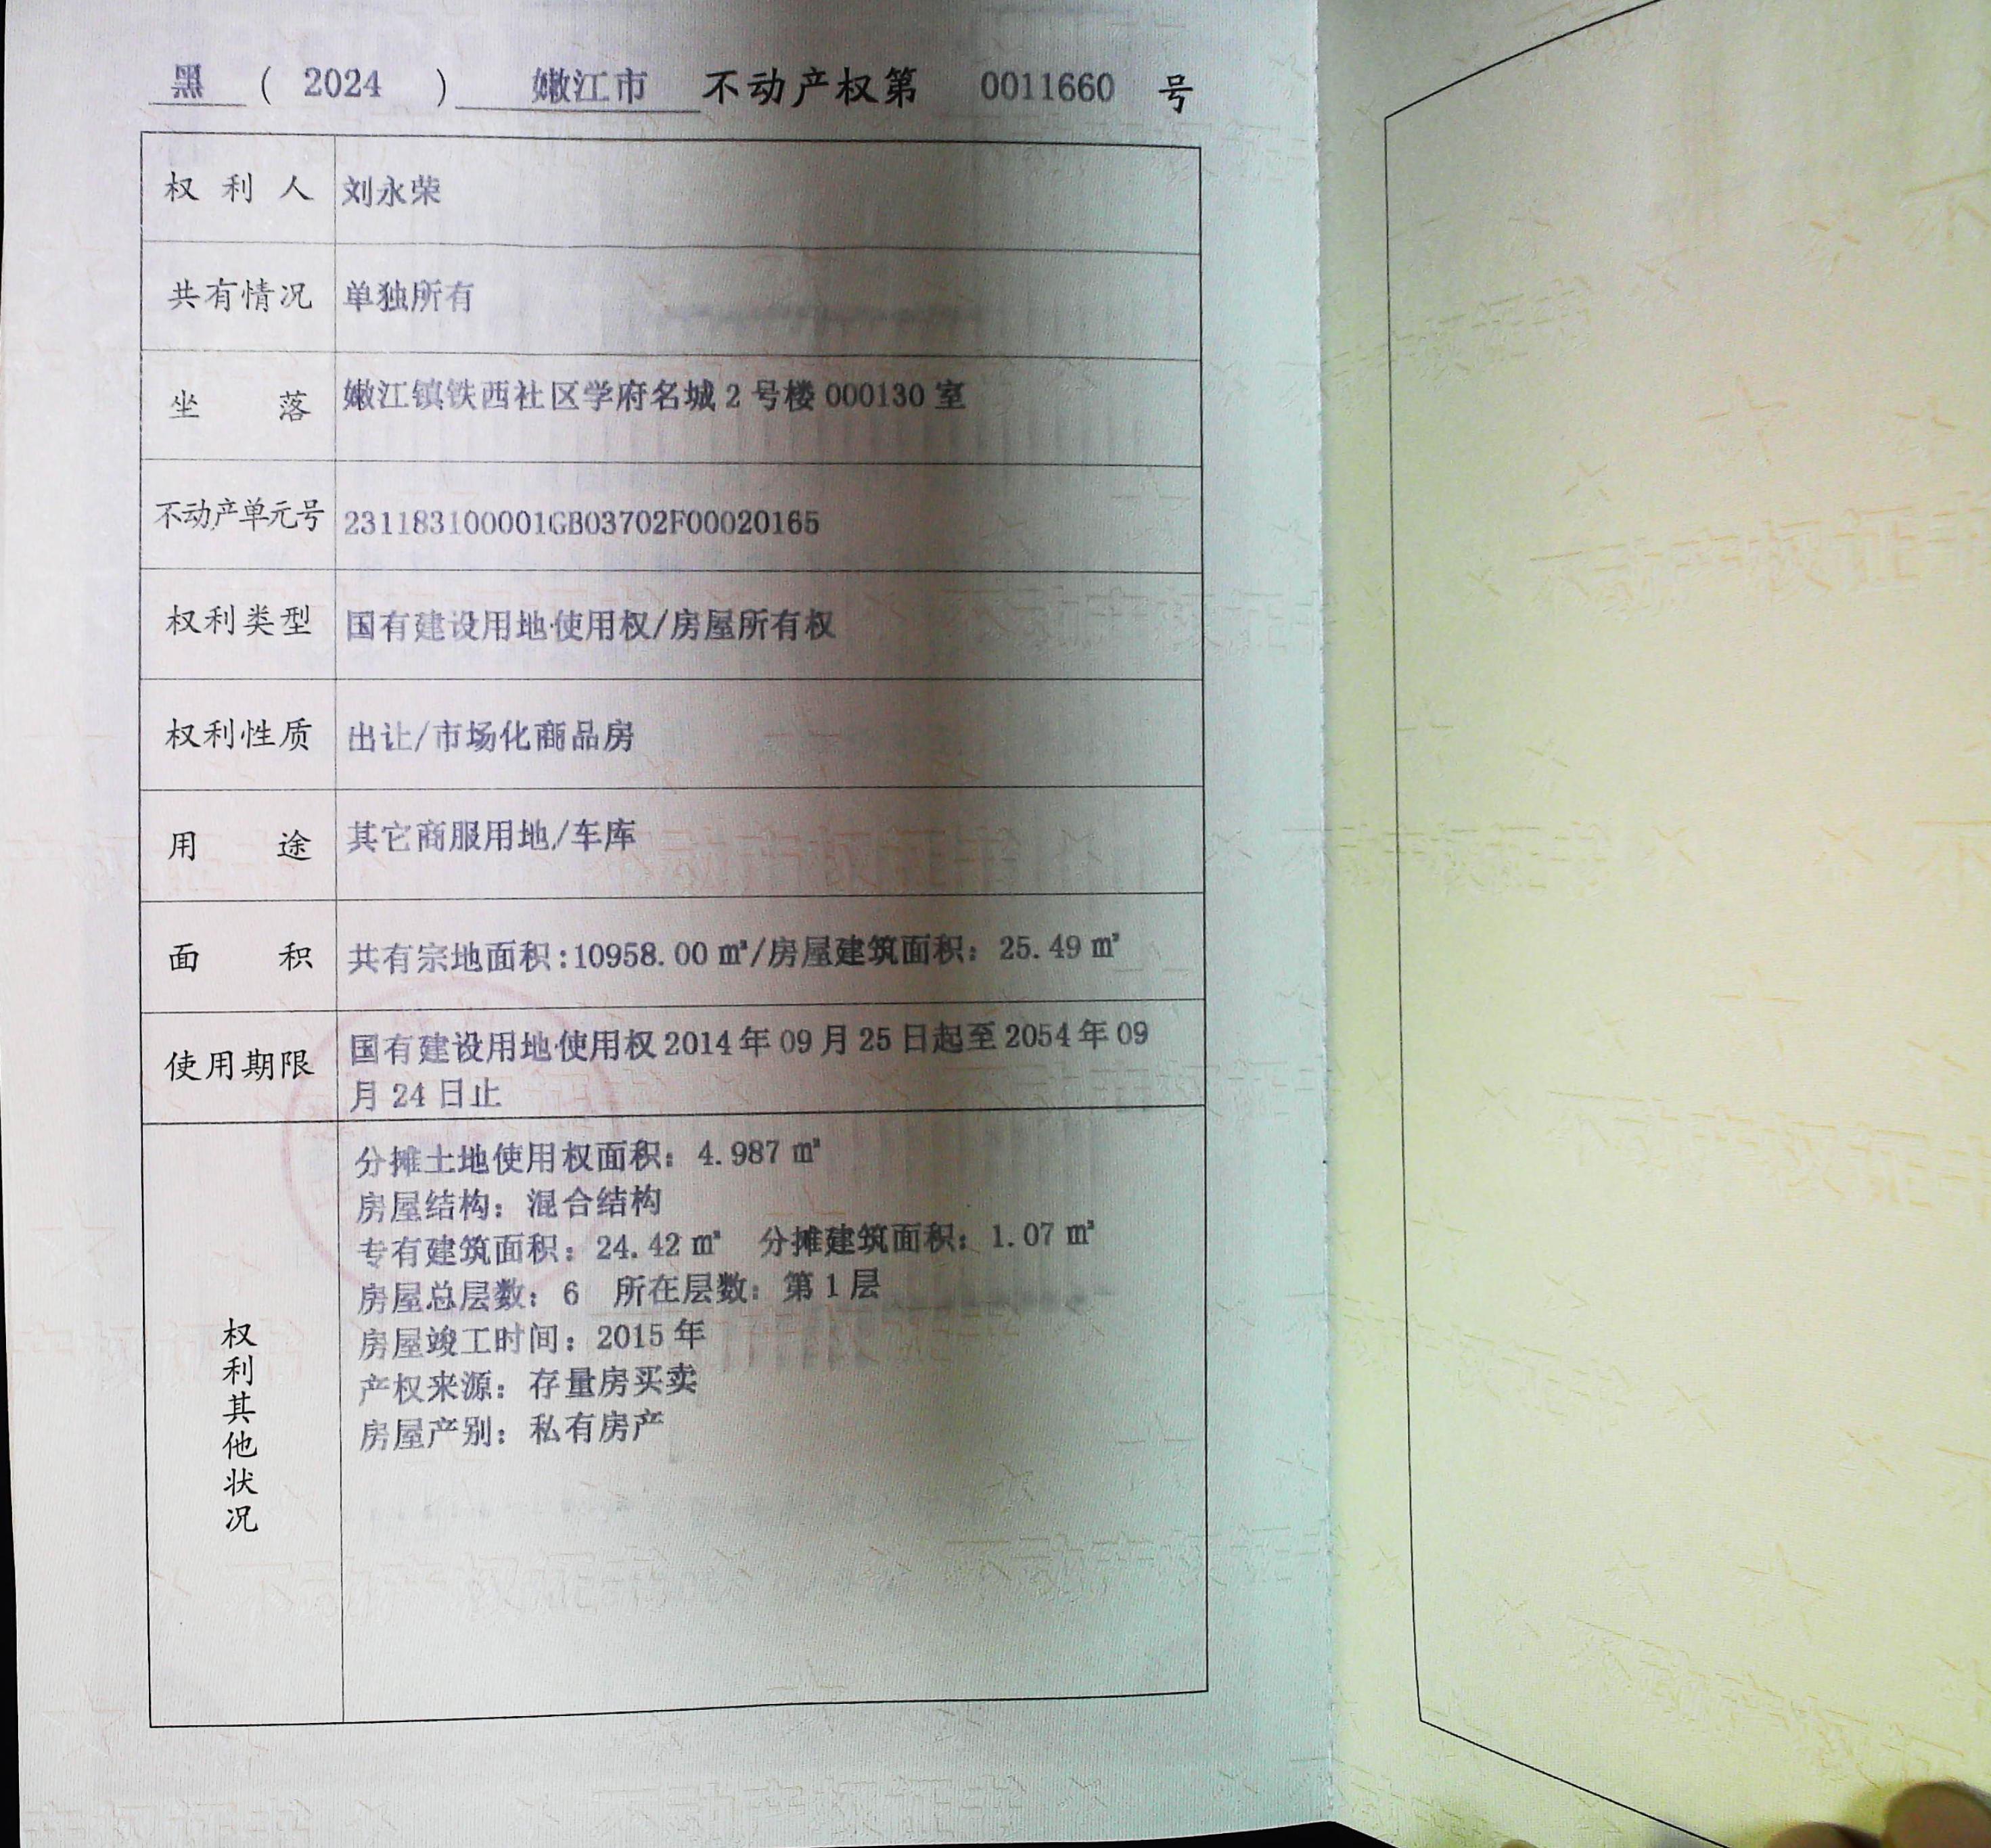 黑 ( 2024 ) 嫩江市 不动产权第 0011660 号
权利人 刘永荣
共有情况 单独所有
坐落 嫩江镇铁西社区学府名城 2 号楼 000130 室
不动产单元号 231183100001GB03702F00020165
权利类型 国有建设用地使用权/房屋所有权
权利性质 出让/市场化商品房
用途 其它商服用地/车库
面积 共有宗地面积:10958.00 ㎡/房屋建筑面积: 25.49 ㎡
使用期限 国有建设用地使用权 2014 年 09 月 25 日起至 2054 年 09
月 24 日止
权利其他状况
分摊土地使用权面积: 4.987 ㎡
房屋结构: 混合结构
专有建筑面积: 24.42 ㎡ 分摊建筑面积: 1.07 ㎡
房屋总层数: 6 所在层数: 第 1 层
房屋竣工时间: 2015 年
产权来源: 存量房买卖
房屋产别: 私有房产